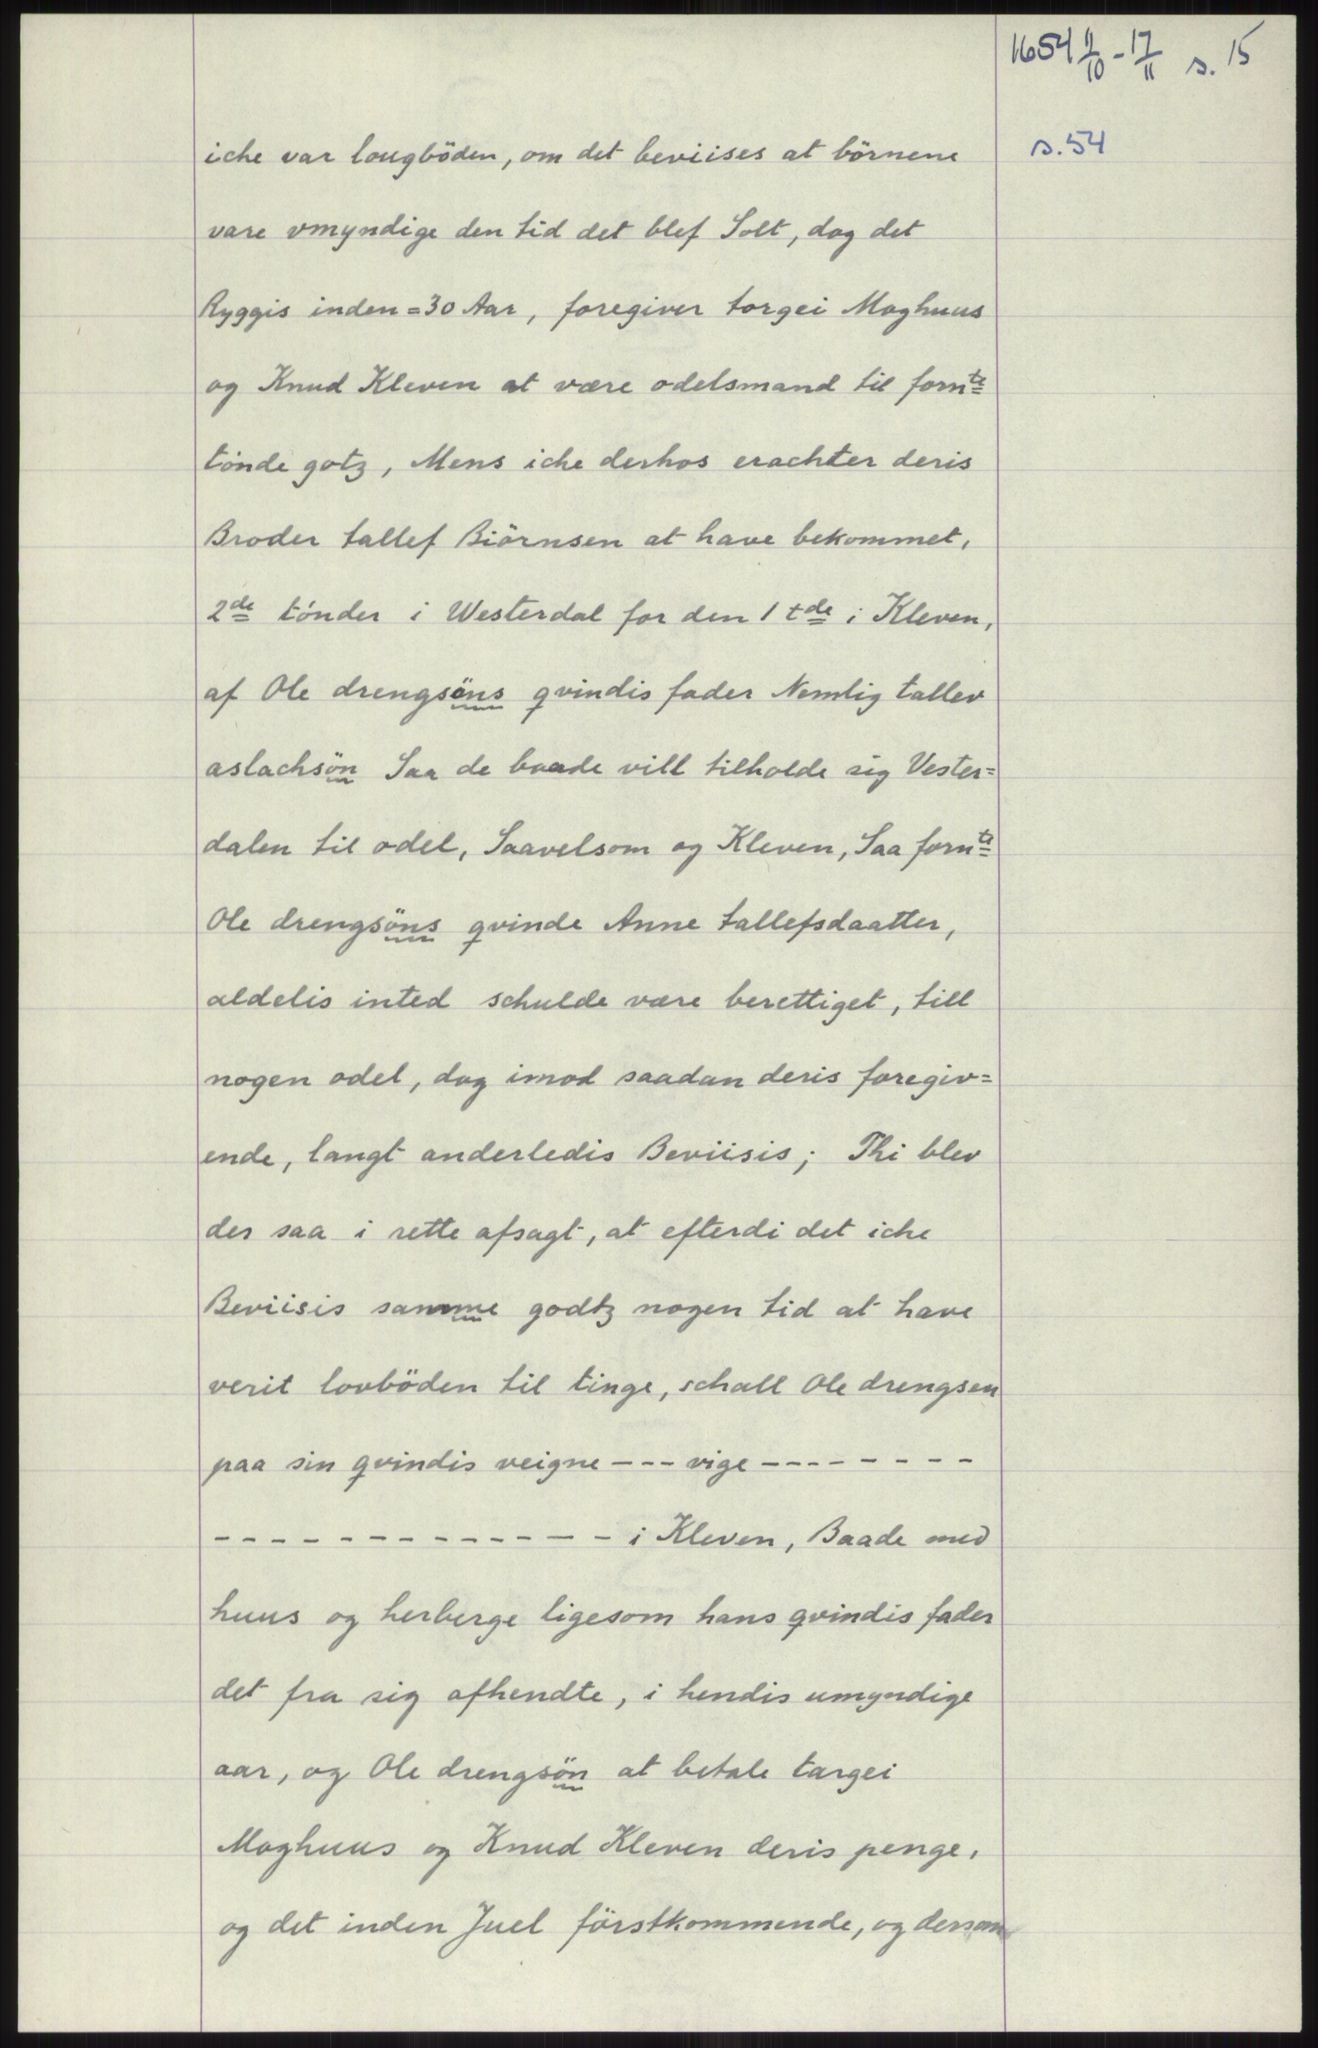 1654 9/10 - 17/11 s. 15
s. 54
iche var lougböden, om det beviises at börnene
vare vmyndige den tid det blef Solt, dog det
Ryggis inden = 30 Aar, foregiver torgei Moghuus
og Knud Kleven at være odelsmand til fornte
tönde gotz, Mens iche derhos erachter deris
Broder tallef Biörnsen at have bekommet,
2de tönder i Westerdal for den 1 tde i Kleven,
af Ole drengsöns qvindis fader Nemlig tallev
aslachsön Saa de baade vill tilholde sig Vester=
dalen til odel, Saavelsom og Kleven, Saa fornte
Ole drengsöns qvinde Anne tallefsdaatter,
aldelis inted schulde være berettiget, till
nogen odel, dog imod saadan deris foregiv=
ende, langt anderledis Beviisis; Thi blev
der saa i rette afsagt, at efterdi det iche
Beviisis samme godtz nogen tid at have
verit lovböden til tinge, schall Ole drengsen
paa sin qvindis veigne --- vige --------
-------------- i Kleven, Baade med
huus og herberge ligesom hans qvindis fader
det fra sig afhendte, i hendis umyndige
aar, og Ole drengsön at betale targei
Moghuus og Knud Kleven deris penge,
og det inden Juel förstkommende, og dersom